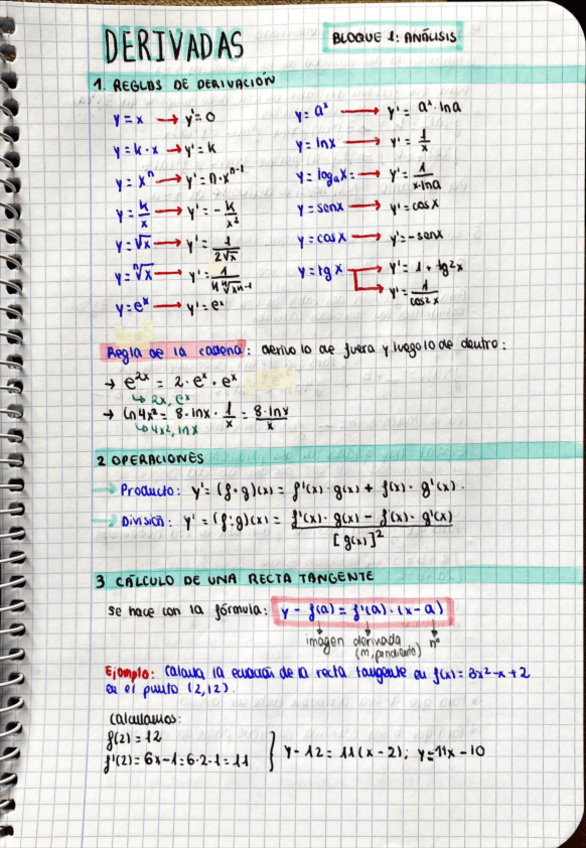 DERIVADAS
BLOQUE 1: ANÁLISIS
1. REGLAS DE DERIVACIÓN
y = x → y' = 0
y = k · x → y' = k
y = xⁿ → y' = n · xⁿ⁻¹
y = k/x → y' = - k/x²
y = √x → y' = 1/(2√x)
y = ⁿ√x → y' = 1/(n ⁿ√xⁿ⁻¹)
y = eˣ → y' = eˣ
y = aˣ → y' = aˣ · lna
y = lnx → y' = 1/x
y = logₐx = → y' = 1/(x·lna)
y = senx → y' = cosx
y = cosx → y' = -senx
y = tgx → y' = 1 + tg²x
→ y' = 1/cos2x
Regla de la cadena: derivo lo de fuera y luego lo de dentro:
→ e²ˣ = 2 · eˣ · eˣ
↳ 2x, eˣ
→ Ln4x² = 8 · lnx · 1/x = 8·lnx/x
↳ 4x², lnx
2 OPERACIONES
→ Producto: y' = (f · g)(x) = f'(x) · g(x) + f(x) · g'(x).
→ División: y' = (f : g)(x) = f'(x) · g(x) - f(x) · g'(x) / [g(x)]²
3 CÁLCULO DE UNA RECTA TANGENTE
se hace con la fórmula: y - f(a) = f'(a) · (x - a)
imagen derivada nº
(m, pendiente)
Ejemplo: Calcula la ecuación de la recta tangente en f(x) = 3x² - x + 2
en el punto (2,12).
Calculamos:
f(2) = 12
f'(2) = 6x - 1 = 6·2 - 1 = 11 } y - 12 = 11(x - 2); y = 11x - 10